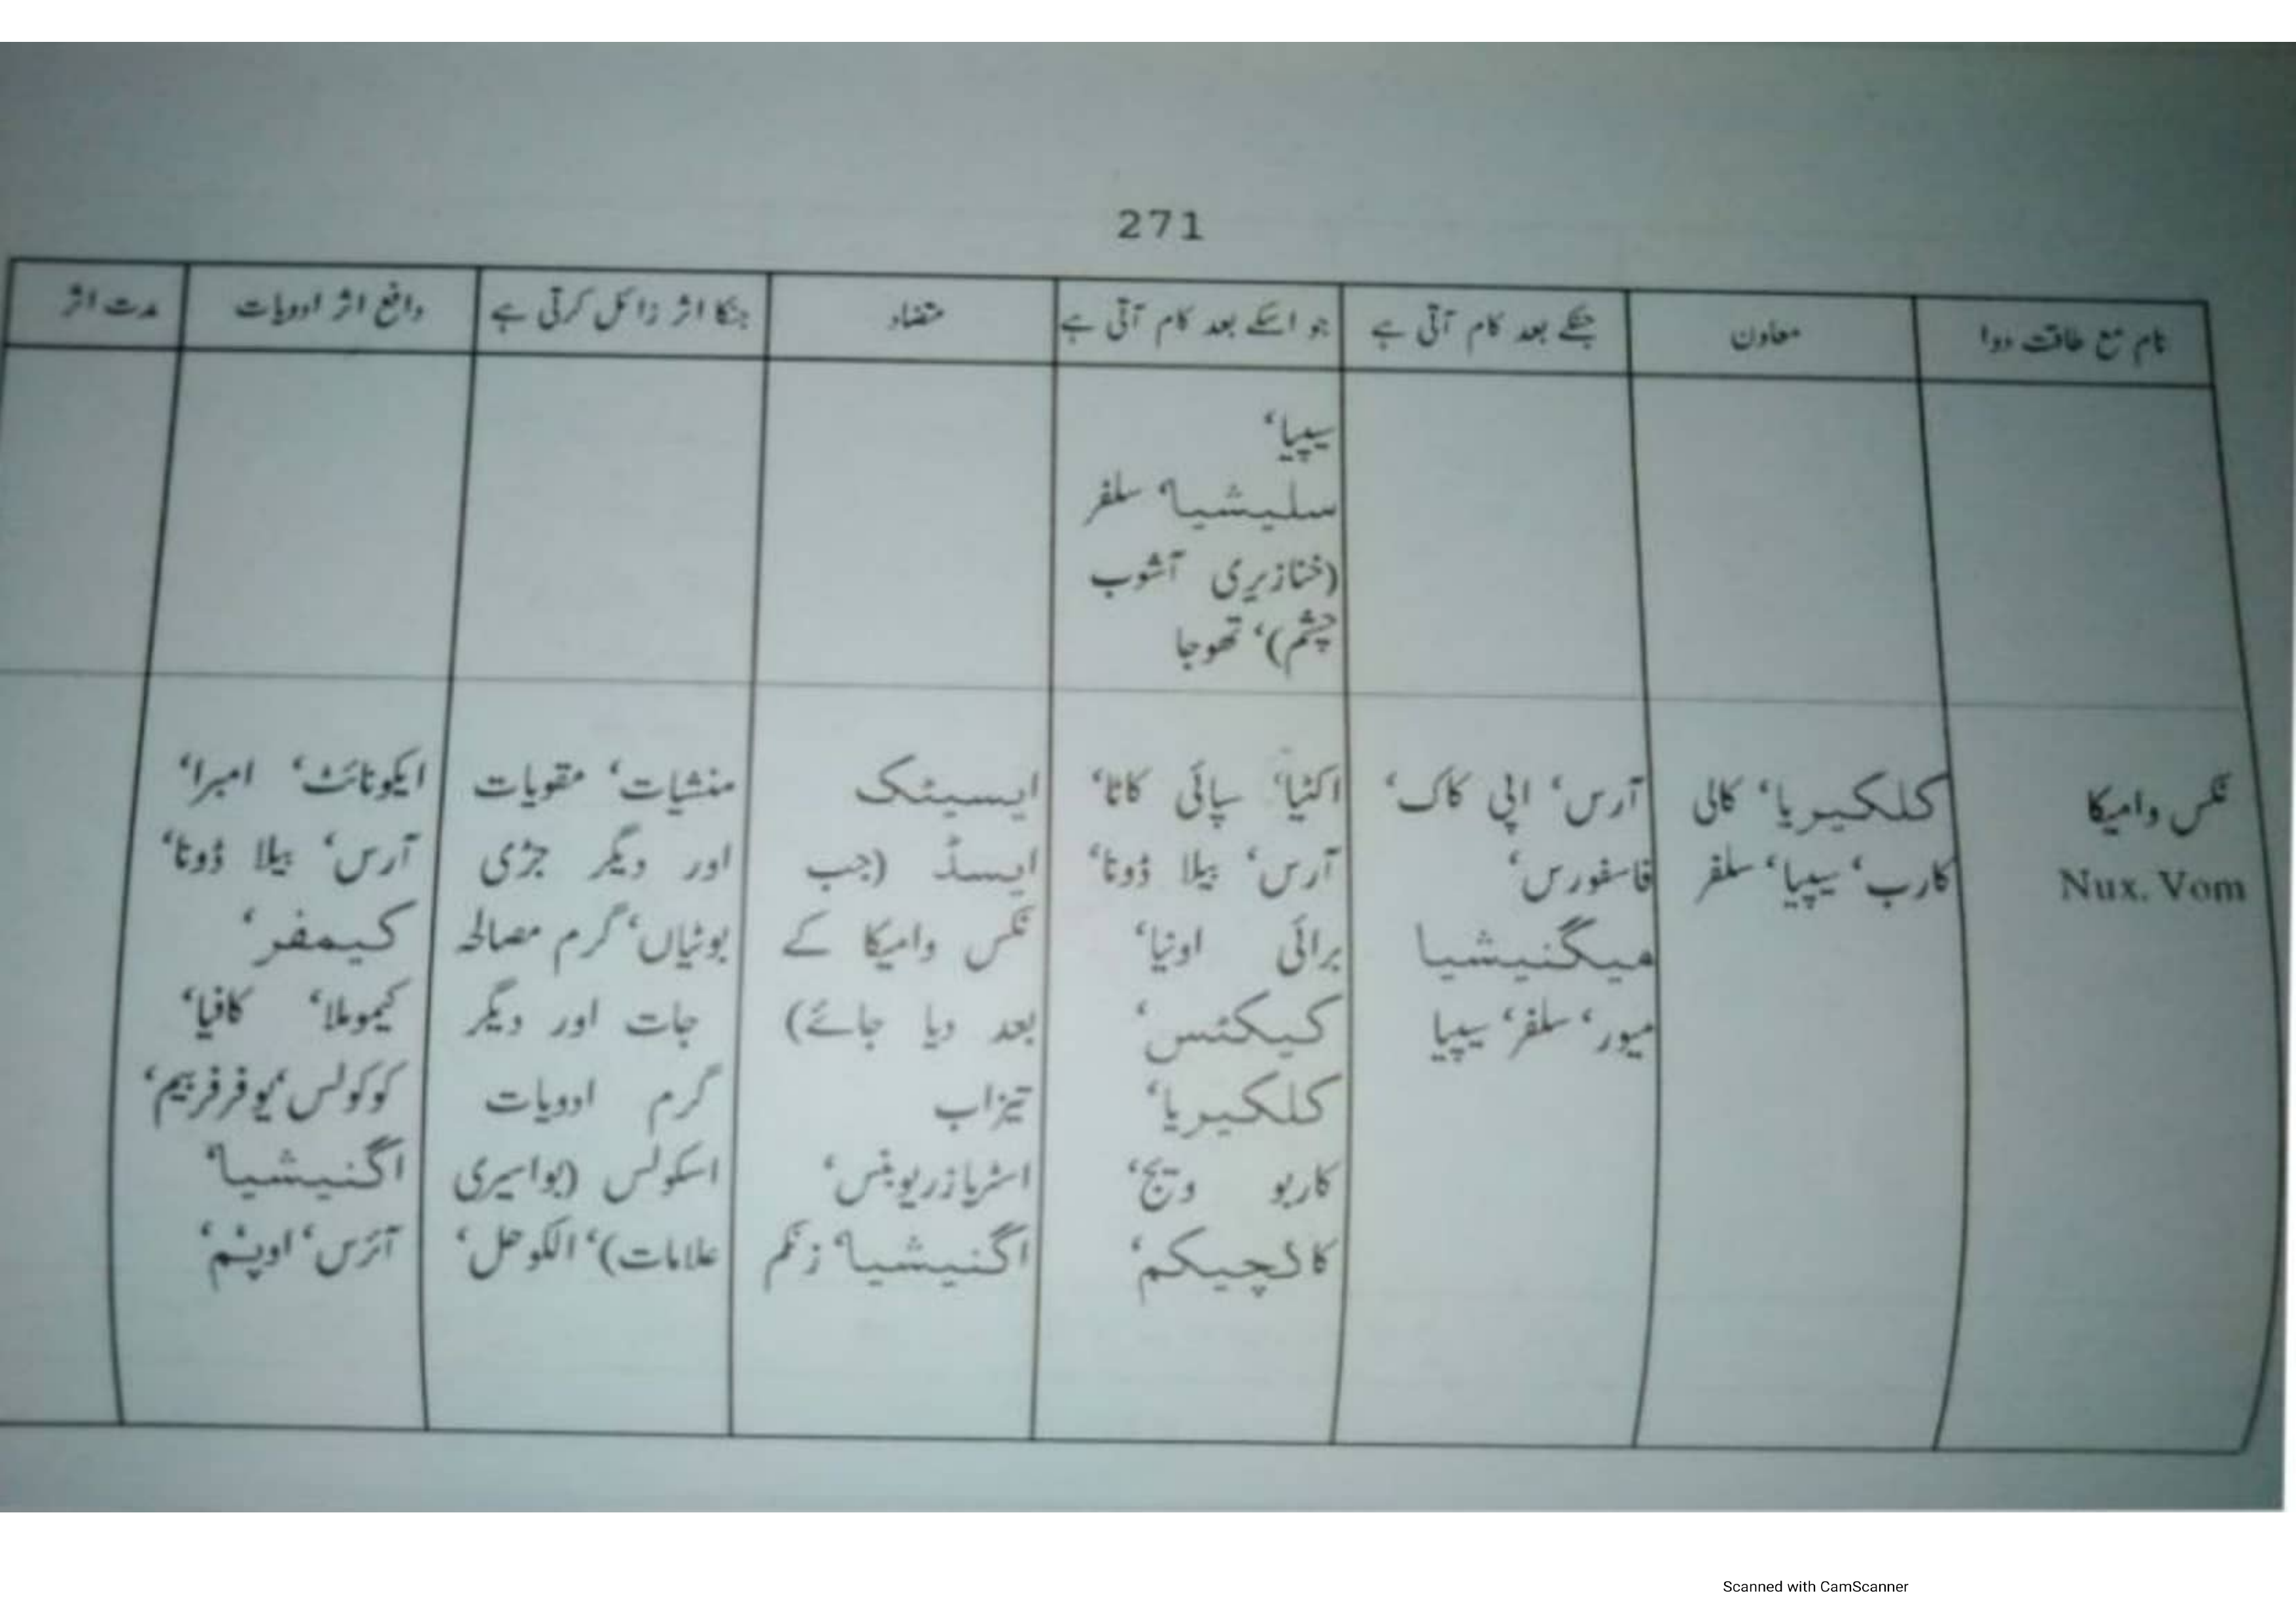 271
نام مع طاقت دوا	معاون	جسکے بعد کام آتی ہے	جو اسکے بعد کام آتی ہے	متضاد	جنکا اثر زائل کرتی ہے	دافع اثر ادویات	مدت اثر
سیپیا‘
سلیشیا‘ سلفر
(خنازیری آشوب
چشم)‘ تھوجا
نکس وامیکا
Nux. Vom
کلکیریا‘ کالی
کارب‘ سیپیا‘ سلفر
آرس‘ اپی کاک‘
فاسفورس‘
میگنیشیا
میور‘ سلفر‘ سیپیا
اکٹیا‘ سپائی کاٹا‘
آرس‘ بیلا ڈونا‘
برائی اونیا‘
کیکٹس‘
کلکیریا‘
کاربو ویج‘
کالچیکم‘
ایسیٹک
ایسڈ (جب
نکس وامیکا کے
بعد دیا جائے)
تیزاب
اگنیشیا‘ زنکم
منشیات‘ مقویات
اور دیگر جڑی
بوٹیاں‘ گرم مصالحہ
جات اور دیگر
گرم ادویات
اسکولس (بواسیری
علامات)‘ الکوحل‘
ایکونائٹ‘ امبرا‘
آرس‘ بیلا ڈونا‘
کیمفر‘
کیموملا‘ کافیا‘
کوکولس‘ یوفرفربیم‘
اگنیشیا‘
آئرس‘ اوپئم‘
Scanned with CamScanner